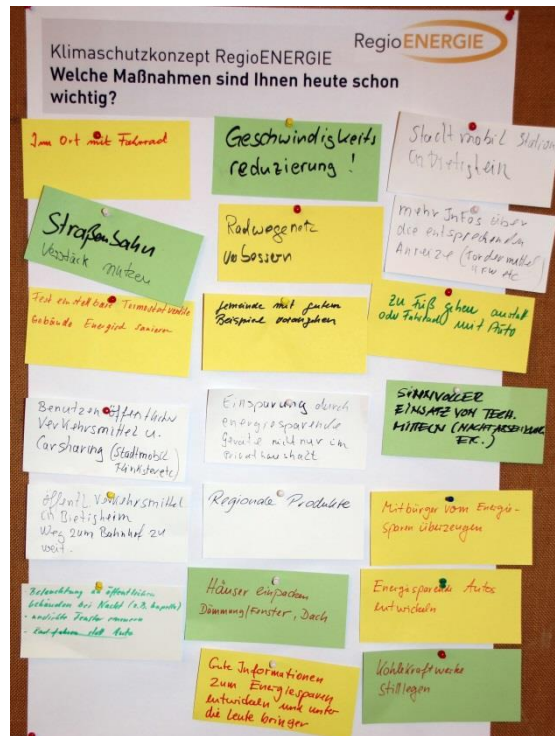 RegioENERGIE
Klimaschutzkonzept RegioENERGIE
Welche Maßnahmen sind Ihnen heute schon
wichtig?
Im Ort mit Fahrrad
Geschwindigkeits
reduzierung !
Stadtmobil Station
in Bietigheim
Straßenbahn
verstärk nutzen
Radwegenetz
verbessern
mehr Infos über
die entsprechenden
Anreize (Fördermittel)
usw etc
Fest einstellbare Termostatventile
Gebäude Energied sanieren
Gemeinde mit gutem
Beispiel vorangehen
zu Fuß gehen anstatt
oder Fahrrad mit Auto
Benutzen öffentlicher
Verkehrsmittel u.
Carsharing (Stadtmobil
Flinkster etc)
Einsparung durch
energiesparende
Geräte nicht nur im
Privathaushalt
SINNVOLLER
EINSATZ VON TECH.
MITTELN (NACHTABSENKUNG
ETC.)
öffentl. Verkehrsmittel
in Bietigheim
Weg zum Bahnhof zu
weit.
Regionale Produkte
Mitbürger vom Energie-
sparn überzeugen
Beleuchtung in öffentlichen
Gebäuden bei Nacht (z.B. Kapelle)
- undichte Fenster erneuern
- Rad fahren statt Auto
Häuser einpacken
Dämmung/Fenster, Dach
Energiesparende Autos
entwickeln
Gute Informationen
zum Energiesparen
entwickeln und unter
die Leute bringen
Kohlekraftwerke
stilllegen